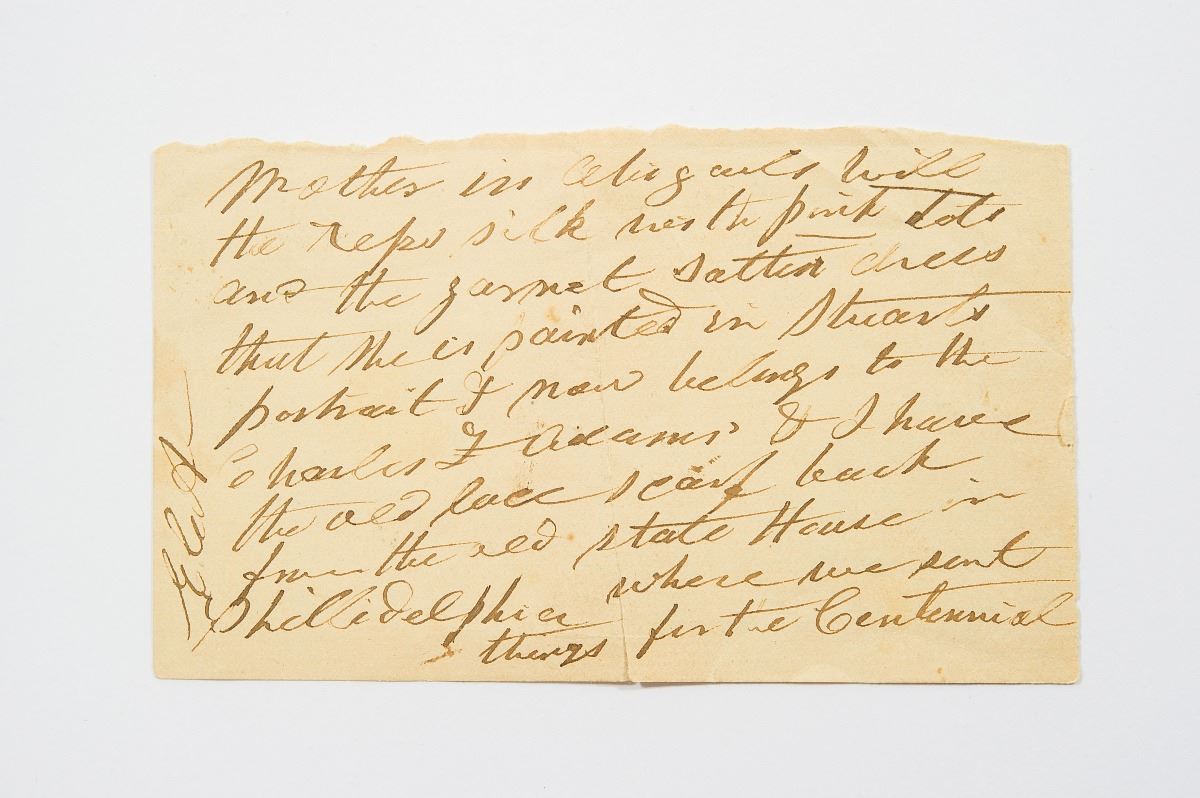 Mother in Abigails will
the reps silk with pink dots
and the garnet sattin dress
that she is painted in Stuarts
portrait & now belongs to the
Charles F Adams' & I have
the old lace scarf back
from the old State House in
Philledelphia where we sent
things for the Centennial